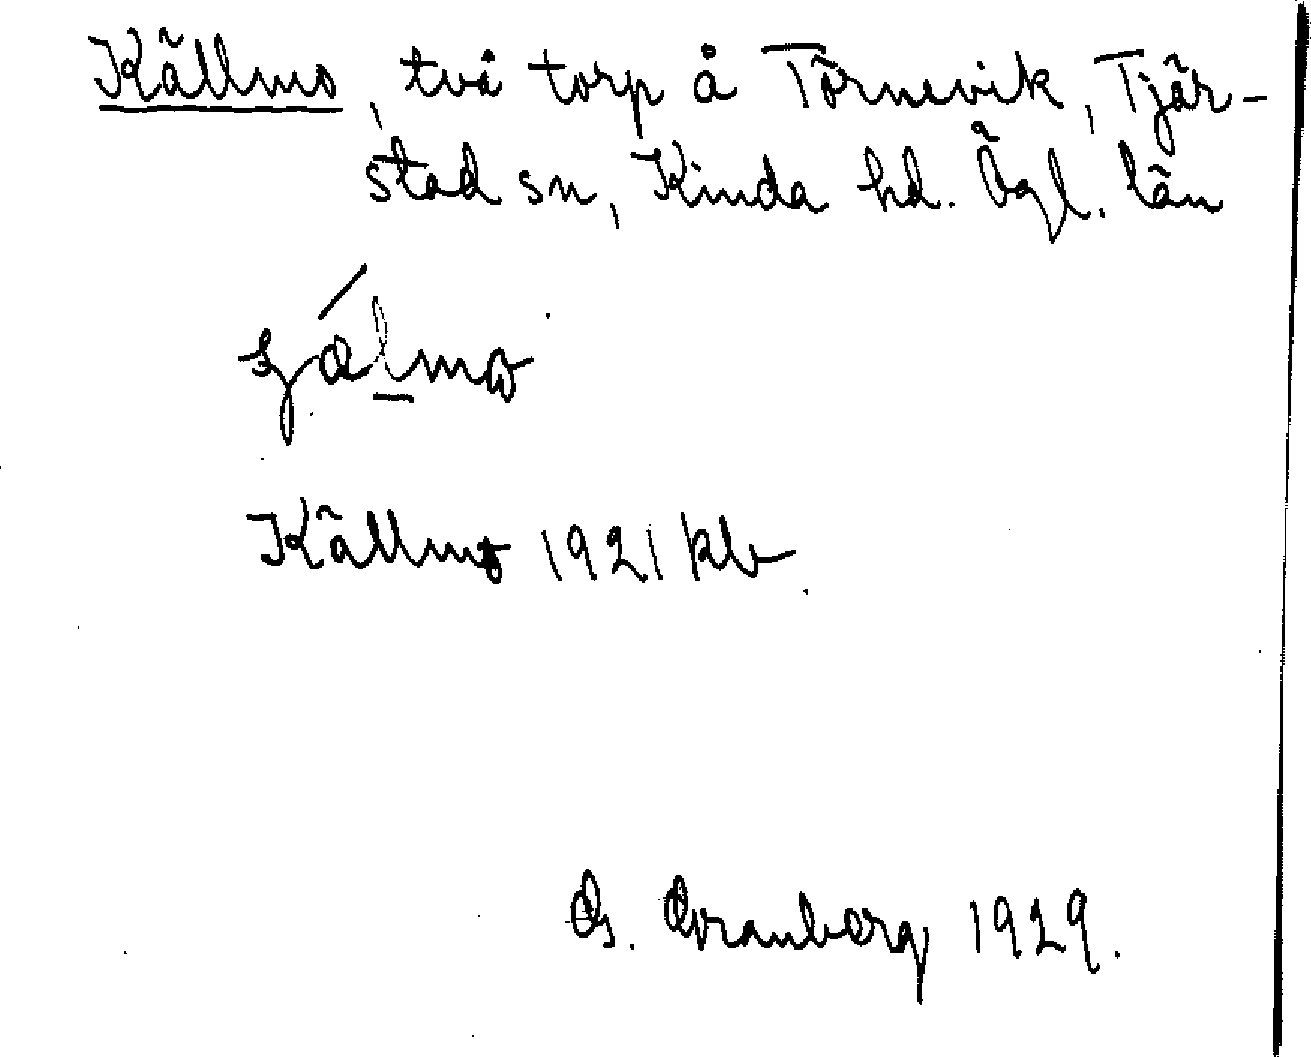 Källmo, två torp å Törnevik, Tjär-
stad sn, Kinda hd. Ögl. län
Källmo 1921 kb
G. Granberg 1929.